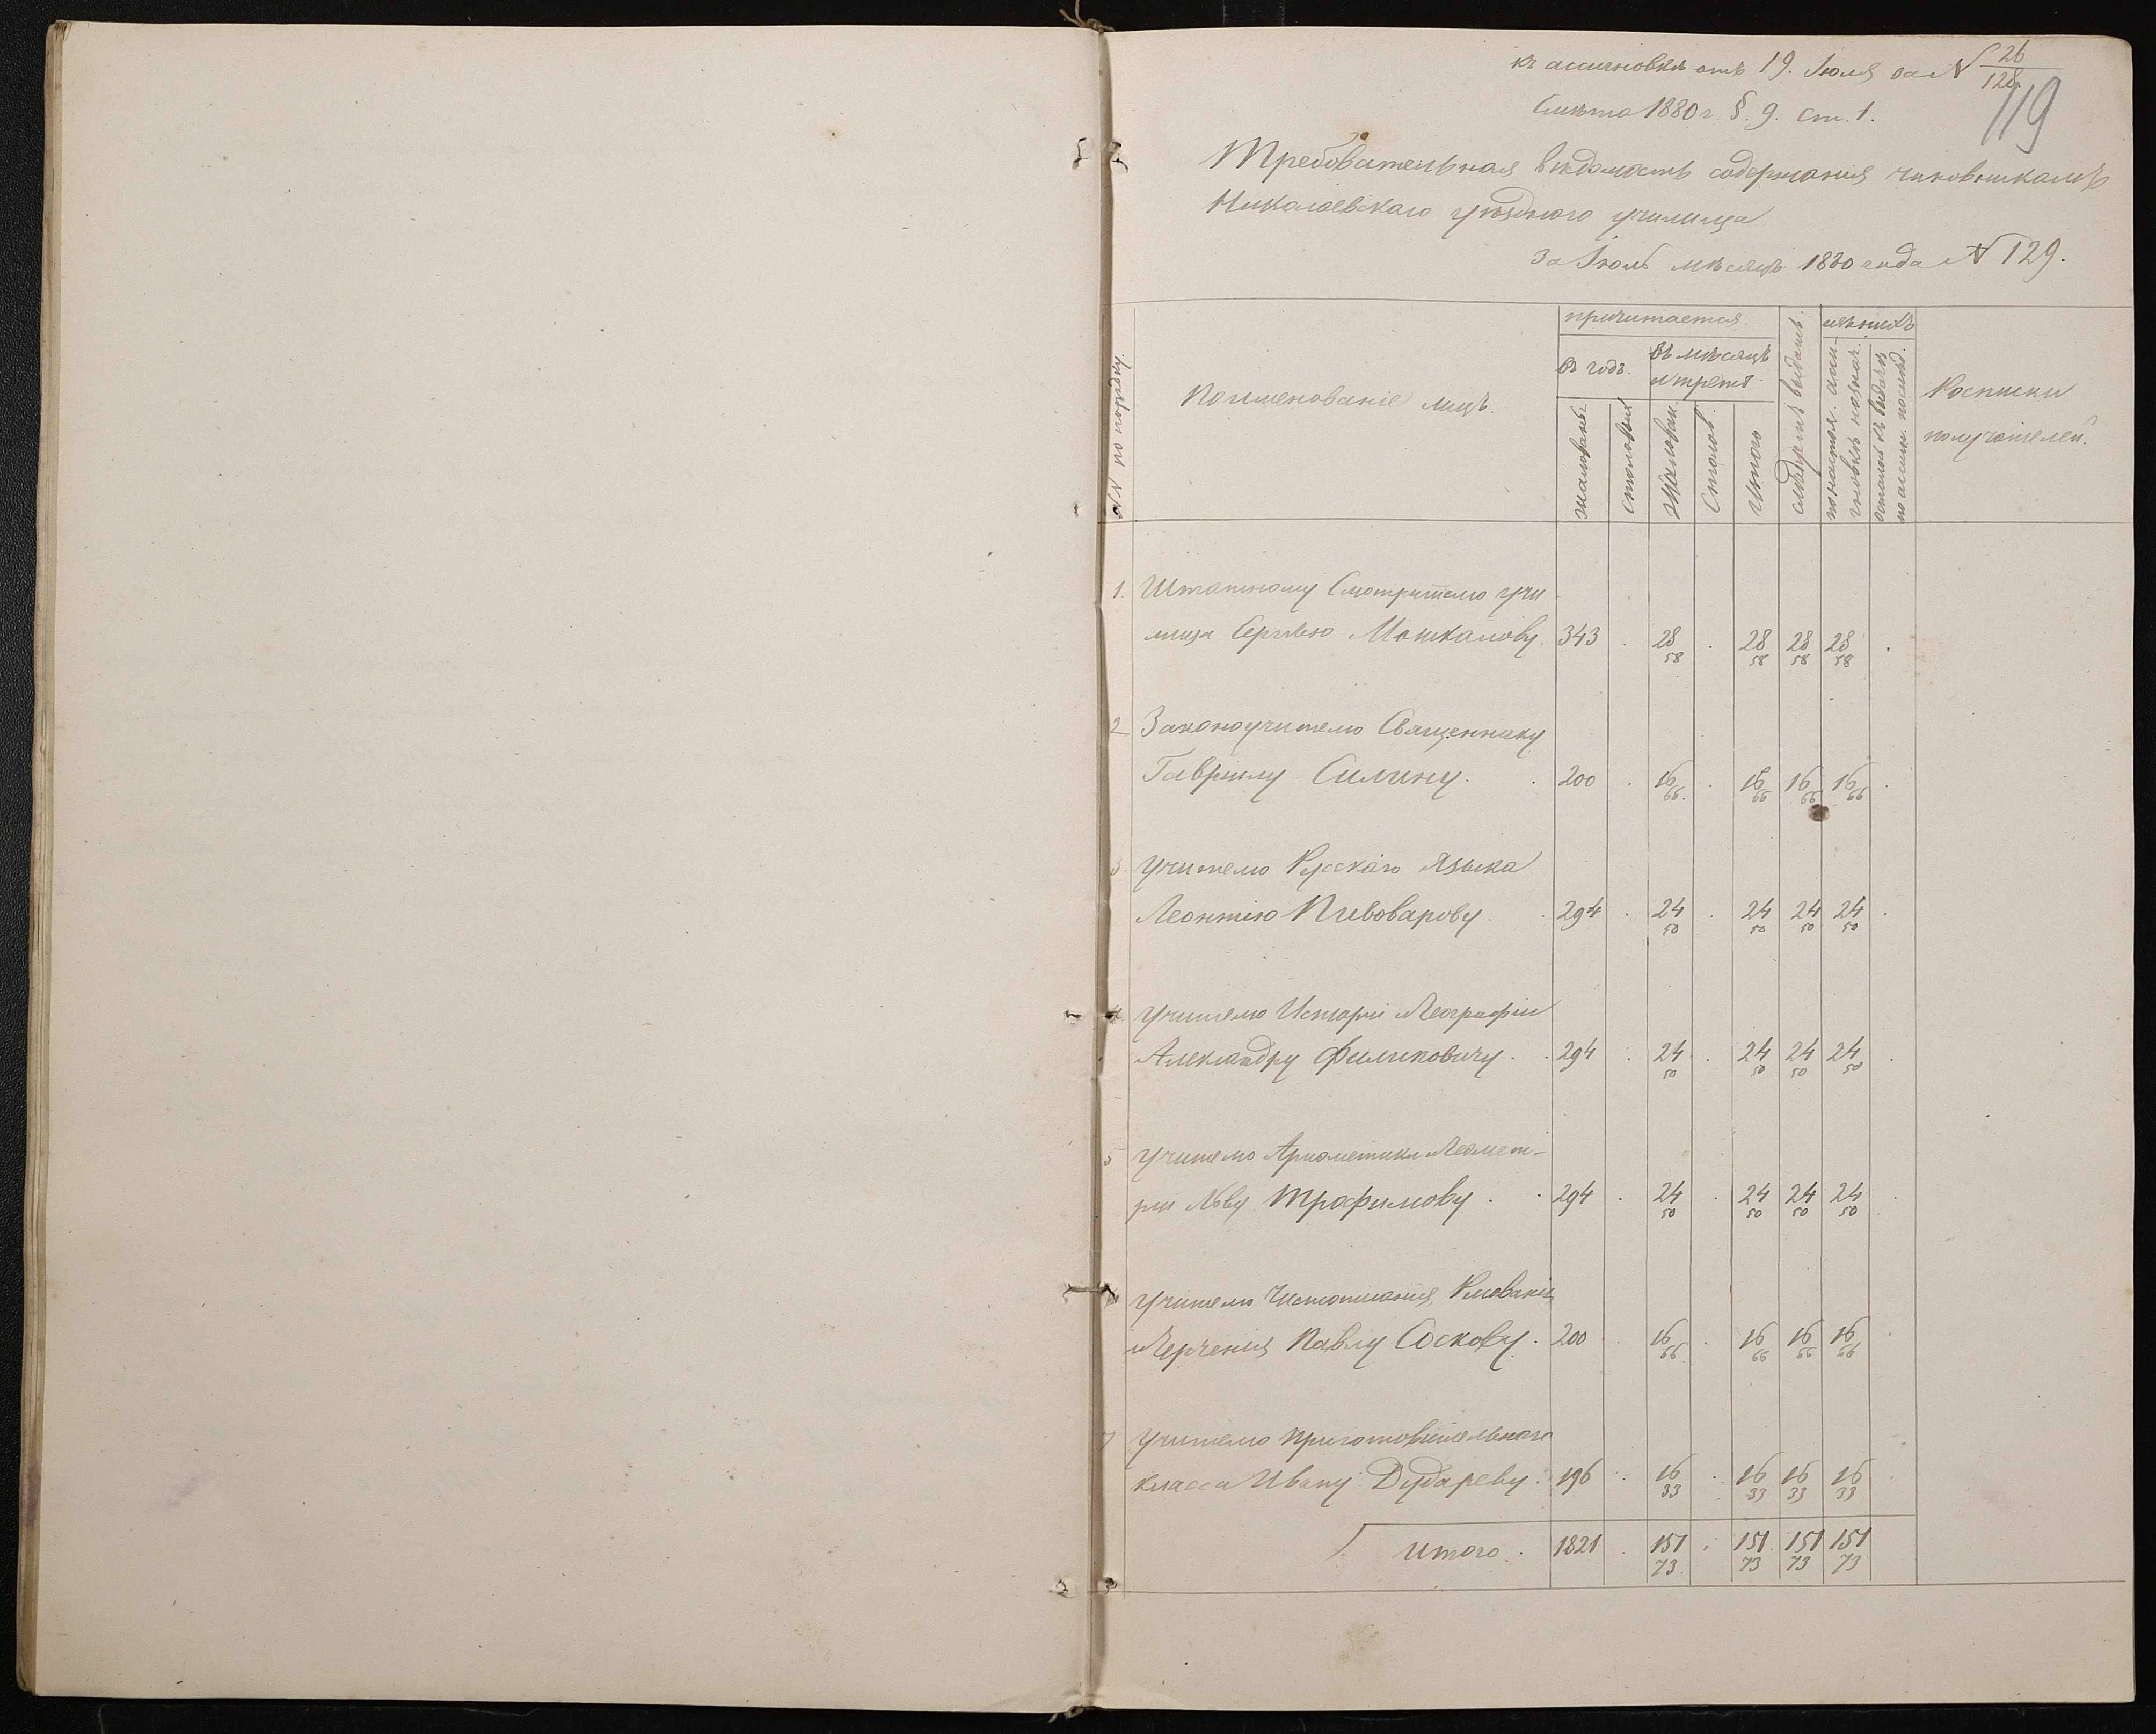 къ ассигновкѣ отъ 19. Іюля за № 26/128
119
Смѣта 1880 г. §. 9. ст. 1.
Требовательная вѣдомость содержанія чиновникамъ
Николаевскаго уѣзднаго училища
За Іюль мѣсяцъ 1880 года № 129.
№ по порядку.
Поименованіе лицъ.
причитается
въ годъ.
въ мѣсяцъ
и треть
жалованье
столовыя
жалован.
столов.
Итого
слѣдуетъ выдать.
изъ нихъ
по настоя. асси-
гновкѣ назнач.
остатокъ къ выдачѣ
по ассигн. послѣд.
Росписки
получателей.
1. Штатному Смотрителю учи
лища Сергѣю Мошкалову. 343 . 28 58 . 28 58 28 58 28 58 .
2 Законоучителю Священнику
Гаврилу Силину. . 200 . 16 66. . 16 66 16 66 16 66 .
3 Учителю Русскаго Языка
Леонтію Пивоварову . 294 . 24 50 . 24 50 24 50 24 50 .
4 Учителю Исторіи Географіи
Александру Филиповичу . . 294 . 24 50 . 24 50 24 50 24 50 .
5 Учителю Ариѳметики Геомет-
ріи Льву Трофимову . . 294 . 24 50 . 24 50 24 50 24 50 .
Учителю Чистописанія, Рисованія
Черченія Павлу Соскову . 200 . 16 66 . 16 66 16 66 16 66 .
7 Учителю приготовительнаго
класса Ивану Дудареву . 196 . 16 33 . 16 33 16 33 16 33 .
Итого . 1821 . 151 73. . 151 73 151 73 151 73